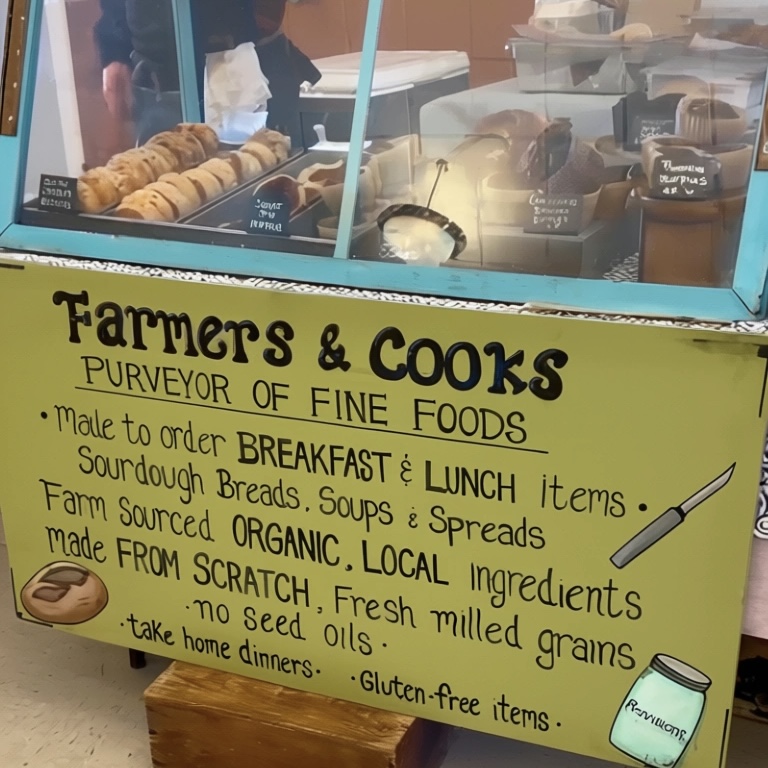 Farmers & Cooks
PURVEYOR OF FINE FOODS
• made to order BREAKFAST & LUNCH items •
Sourdough Breads, Soups & Spreads
Farm Sourced ORGANIC, LOCAL Ingredients
made FROM SCRATCH, Fresh milled grains
• no seed oils •
• take home dinners • • Gluten-free items •